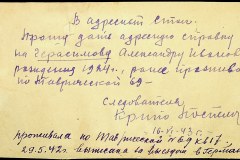 В адресный стол.
Прошу дать адресную справку
на Герасимову Александру Иванов
рождения 1924 г., ранее прожива
по Таврической 69 -
Следователь
16-VI-43 г.
Проживала по Таврической № 69 кв 17.
29.5.42 г. выписана с выездом в Герман